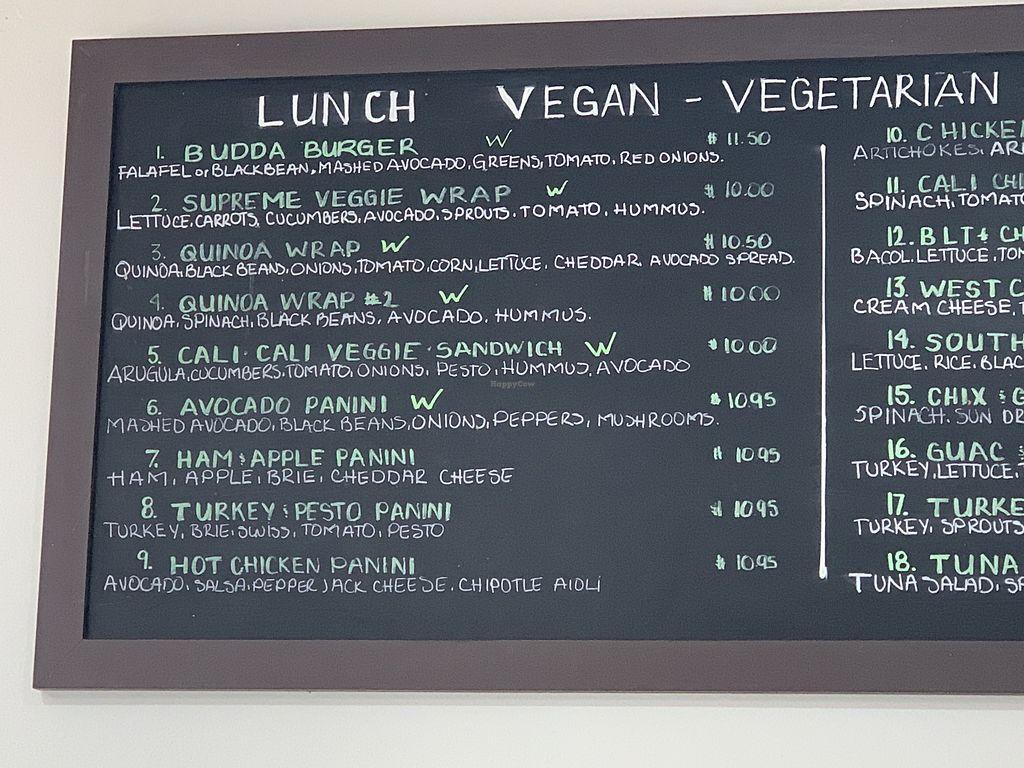 LUNCH VEGAN - VEGETARIAN
1. BUDDA BURGER W $ 11.50
FALAFEL or BLACKBEAN, MASHED AVOCADO, GREENS, TOMATO, RED ONIONS.
2. SUPREME VEGGIE WRAP W $ 10.00
LETTUCE, CARROTS, CUCUMBERS, AVOCADO, SPROUTS, TOMATO, HUMMUS.
3. QUINOA WRAP W $ 10.50
QUINOA, BLACK BEANS, ONIONS, TOMATO, CORN, LETTUCE, CHEDDAR, AVOCADO SPREAD.
4. QUINOA WRAP #2 W $ 10.00
QUINOA, SPINACH, BLACK BEANS, AVOCADO, HUMMUS.
5. CALI·CALI VEGGIE·SANDWICH W $ 10.00
ARUGULA, CUCUMBERS, TOMATO, ONIONS, PESTO, HUMMUS, AVOCADO
6. AVOCADO PANINI W $ 10.95
MASHED AVOCADO, BLACK BEANS, ONIONS, PEPPERS, MUSHROOMS.
7. HAM & APPLE PANINI $ 10.95
HAM, APPLE, BRIE, CHEDDAR CHEESE
8. TURKEY & PESTO PANINI $ 10.95
TURKEY, BRIE, SWISS, TOMATO, PESTO
9. HOT CHICKEN PANINI $ 10.95
AVOCADO, SALSA, PEPPER JACK CHEESE, CHIPOTLE AIOLI
10. CHICKE
ARTICHOKES, AR
11. CALI CHI
SPINACH, TOMAT
12. BLT & CH
BACOL, LETTUCE, TOM
13. WEST C
CREAM CHEESE, T
14. SOUTH
LETTUCE, RICE, BLAC
15. CHIX & G
SPINACH, SUN DR
16. GUAC &
TURKEY, LETTUCE, T
17. TURKE
TURKEY, SPROUTS
18. TUNA
TUNA SALAD, SP
HappyCow